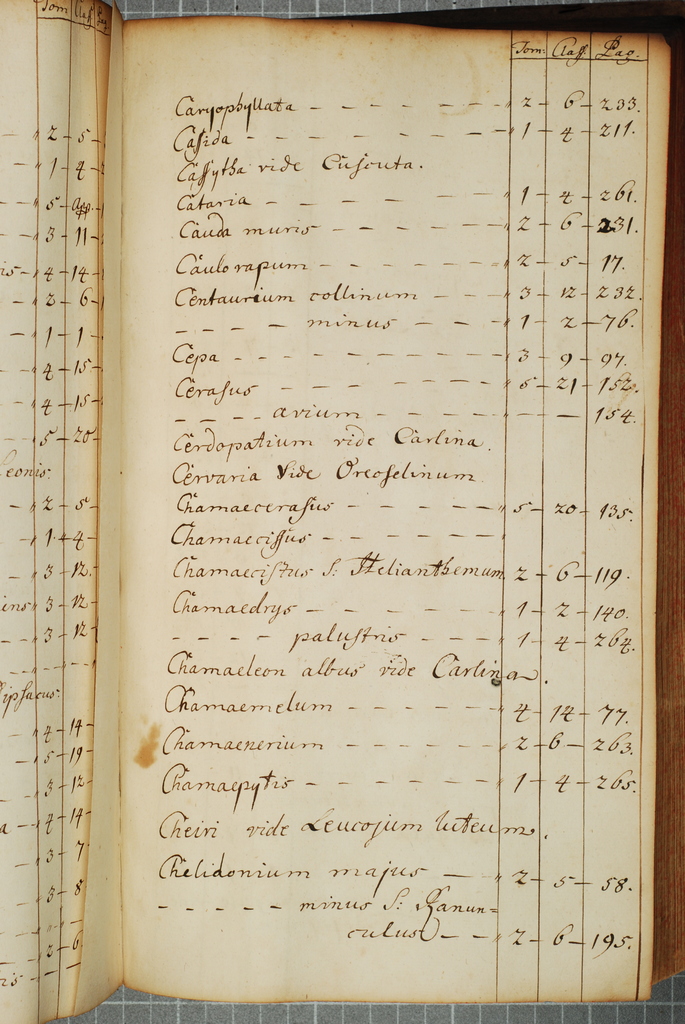 Tom: Class. Pag.
Caryophyllata - - - - - - - " 2 - 6 - 233.
Cassida - - - - - - - - " 1 - 4 - 211.
Cassytha vide Cuscuta.
Cataria - - - - - - - " 1 - 4 - 261.
Cauda muris - - - - - " 2 - 6 - 231.
Caulorapum - - - - - " 2 - 5 - 17.
Centaurium collinum - - - " 3 - 12 - 232.
- - - - minus - - - " 1 - 2 - 76.
Cepa - - - - - - - - 3 - 9 - 97.
Cerasus - - - - - - - " 5 - 21 - 152.
- - - - avium - - - - - - 154.
Cerdopatium vide Carlina.
Cervaria Vide Oreoselinum
Chamaecerasus - - - - - " 5 - 20 - 135.
Chamaecissus - - - - - - "
Chamaecistus S: Helianthemum 2 - 6 - 119.
Chamaedrys - - - - - - " 1 - 2 - 140.
- - - - palustris - - - " 1 - 4 - 264.
Chamaeleon albus vide Carlina.
Chamaemelum - - - - - 4 - 14 - 77.
Chamaenerium - - - - - 2 - 6 - 263.
Chamaepytis - - - - - - 1 - 4 - 265.
Cheiri vide Leucojum luteum.
Chelidonium majus - - - " 2 - 5 - 58.
- - - - - minus S: Ranun=
culus - - " 2 - 6 - 195.
Tom Class Pag
" 2 - 5 -
" 1 - 4 -
" 5 - app. -
" 3 - 11 -
is - " 4 - 14 -
" 2 - 6 -
" 1 - 1 -
" 4 - 15 -
" 4 - 15 -
" 5 - 20 -
Leonis:
" 2 - 5 -
" 1 - 4 -
" 3 - 12.
ins " 3 - 12 -
" 3 - 12 -
Dipsacus:
" 4 - 14 -
" 5 - 19 -
" 3 - 12 -
a - " 4 - 14 -
" 3 - 7
" 3 - 8
" 2 - 6